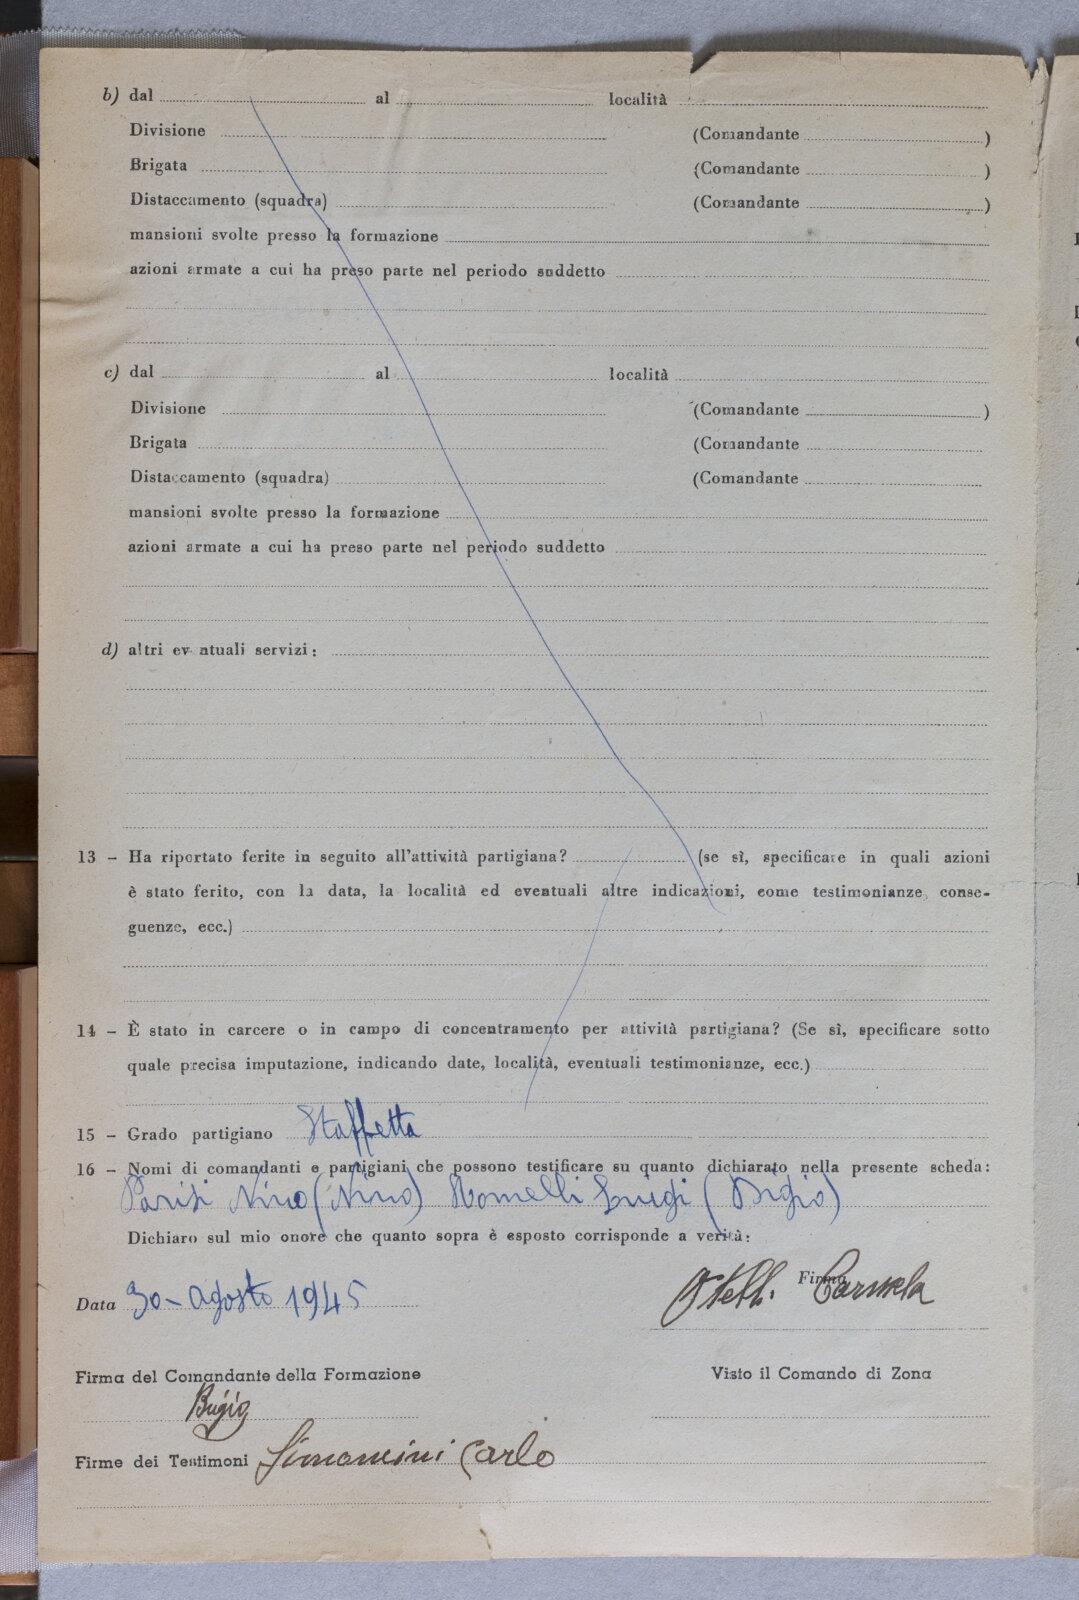 b) dal al località
Divisione (Comandante )
Brigata (Comandante )
Distaccamento (squadra) (Comandante )
mansioni svolte presso la formazione
azioni armate a cui ha preso parte nel periodo suddetto
c) dal al località
Divisione (Comandante )
Brigata (Comandante
Distaccamento (squadra) (Comandante
mansioni svolte presso la formazione
azioni armate a cui ha preso parte nel periodo suddetto
d) altri ev ntuali servizi:
13 – Ha riportato ferite in seguito all'attività partigiana? (se sì, specificare in quali azioni
è stato ferito, con la data, la località ed eventuali altre indicazioni, come testimonianze, conse-
guenze, ecc.)
14 – È stato in carcere o in campo di concentramento per attività partigiana? (Se sì, specificare sotto
quale precisa imputazione, indicando date, località, eventuali testimonianze, ecc.)
15 – Grado partigiano Staffetta
16 – Nomi di comandanti e partigiani che possono testificare su quanto dichiarato nella presente scheda:
Parisi Nino (Nino) Luigi (Bigio)
Dichiaro sul mio onore che quanto sopra è esposto corrisponde a verità:
Firma
Data 30 - agosto 1945
Firma del Comandante della Formazione Visto il Comando di Zona
Bigio
Firme dei Testimoni Simoncini Carlo